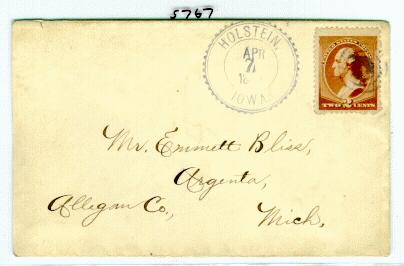 5767
HOLSTEIN,
APR
7
18
IOWA
TWO 2 CENTS
Mr. Emmett Bliss,
Argenta,
Allegan Co.,
Mich.